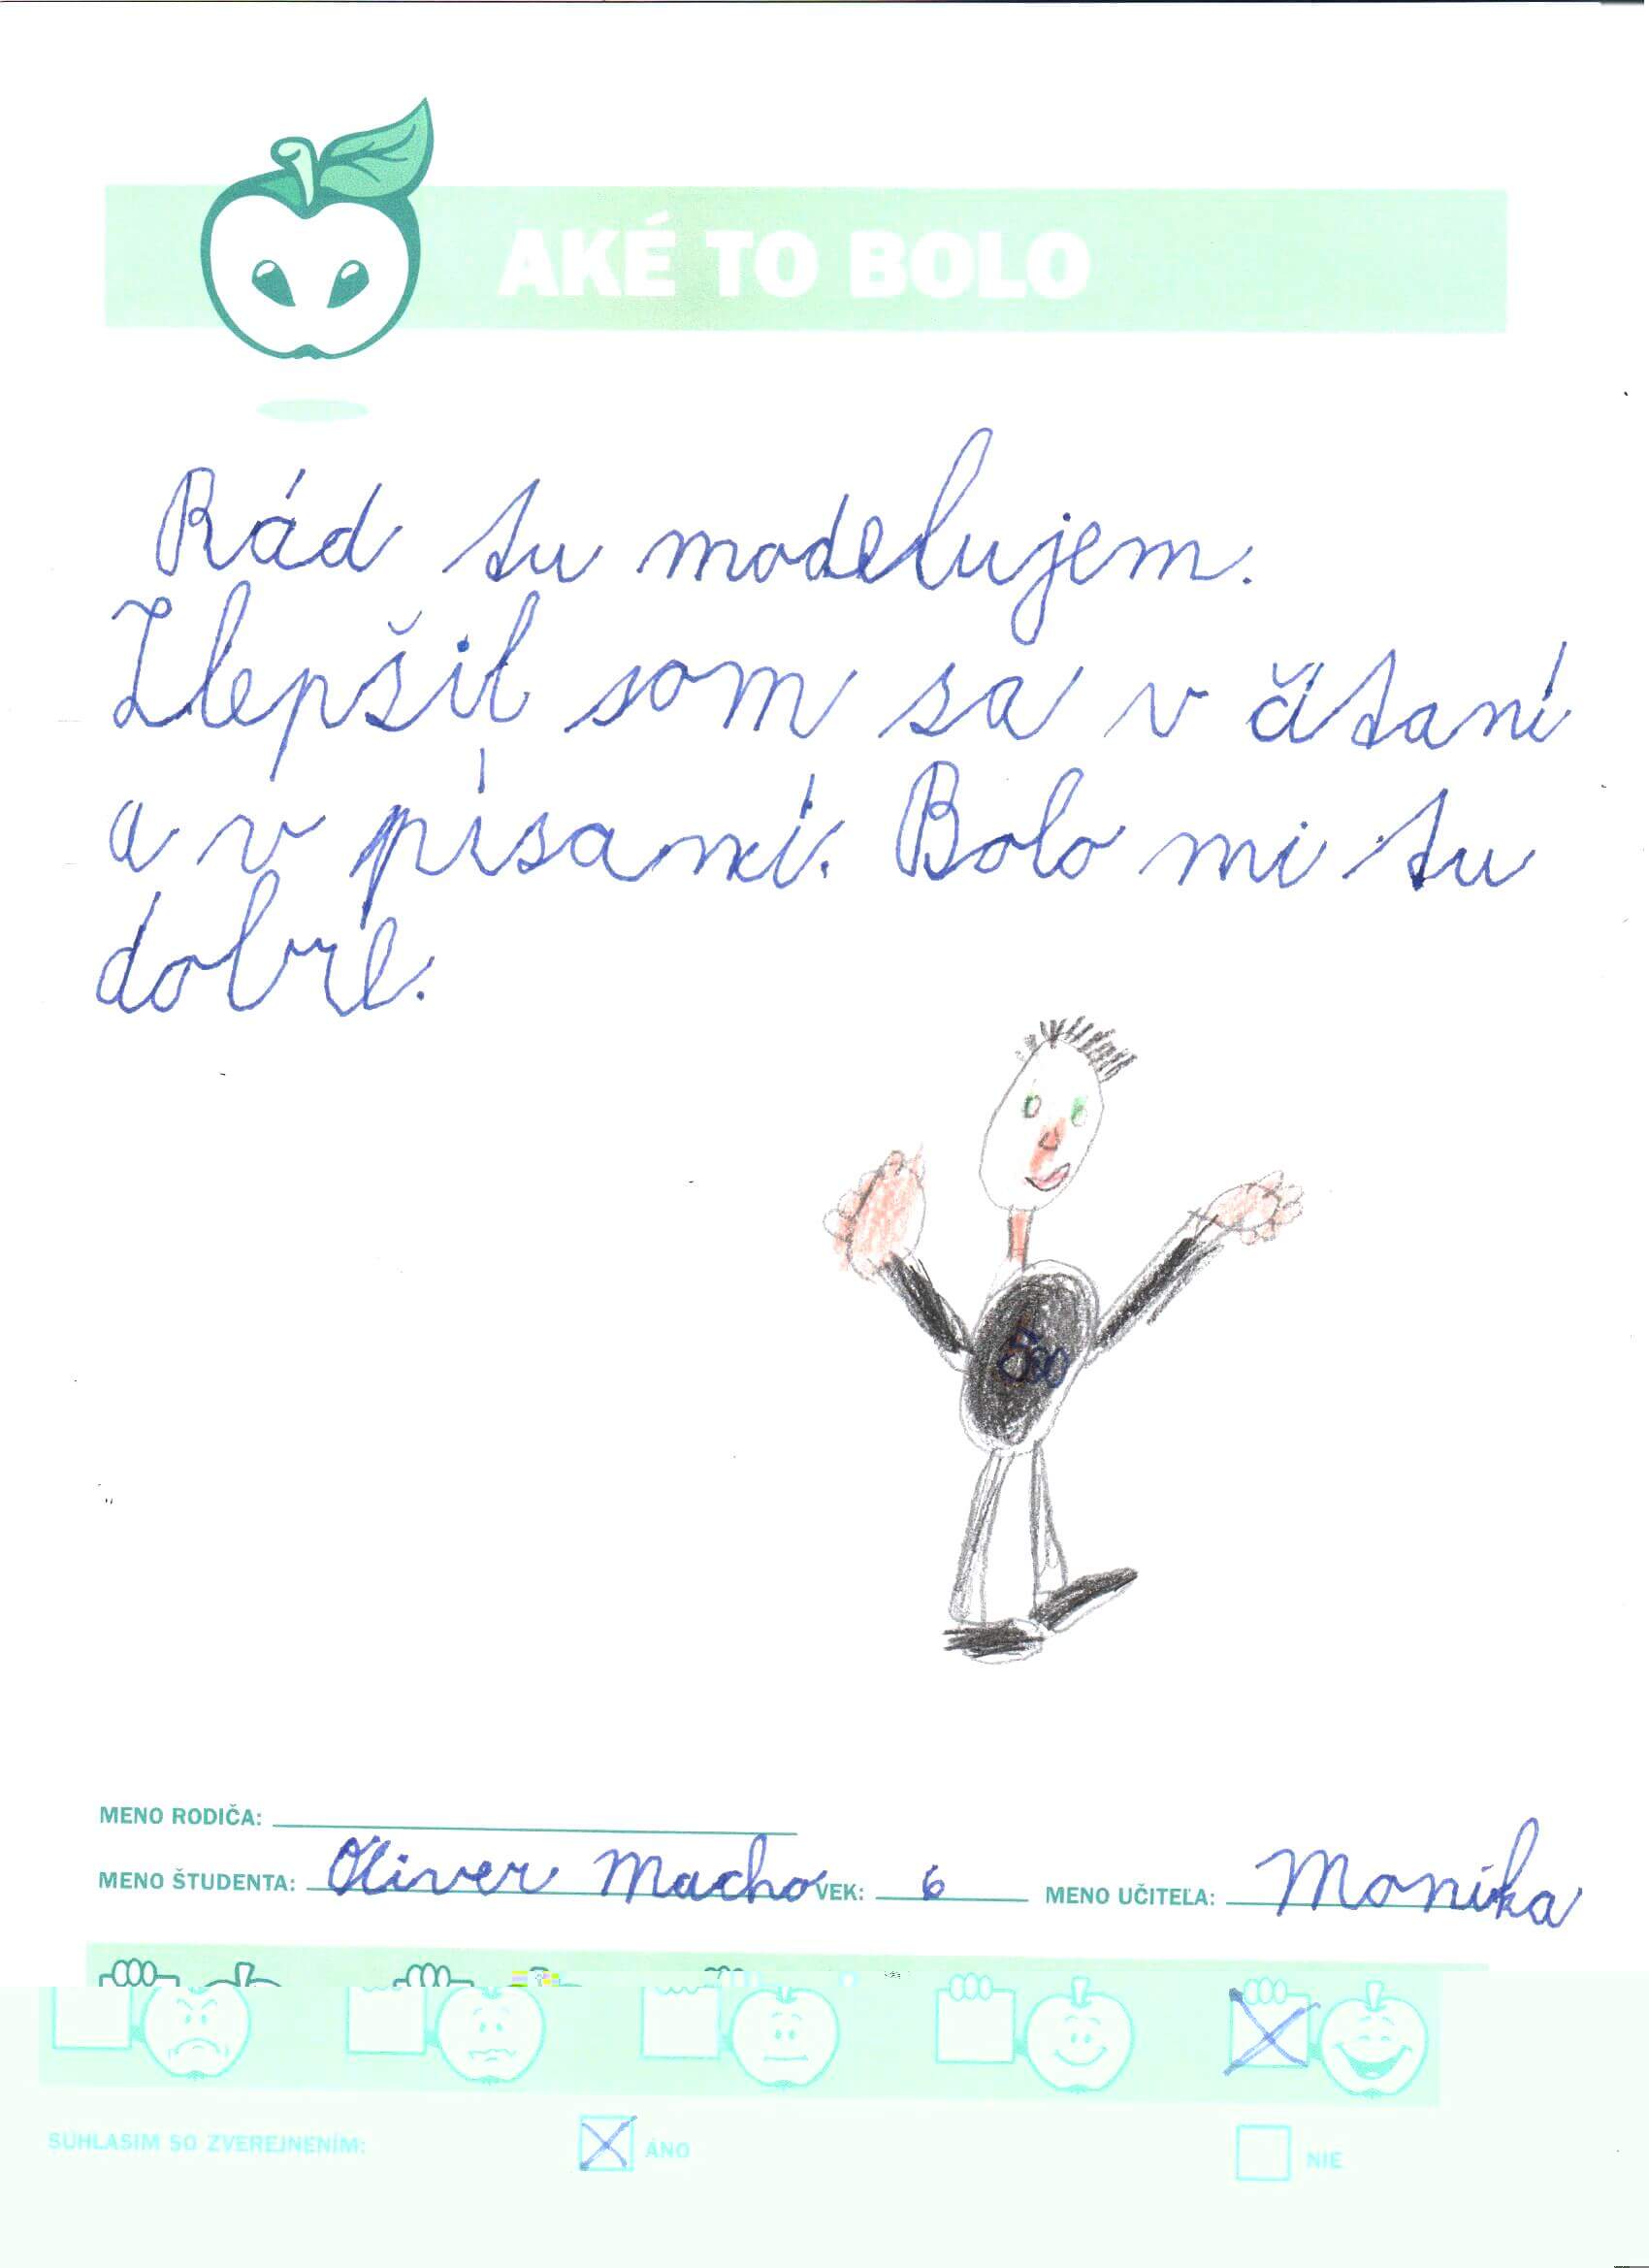 AKÉ TO BOLO
Rád tu modelujem.
Zlepšil som sa v čítaní
a v písaní. Bolo mi tu
dobre.
MENO RODIČA:
MENO ŠTUDENTA: Oliver Macho VEK: 6 MENO UČITEĽA: Monika
SÚHLASIM SO ZVEREJNENÍM: ÁNO NIE